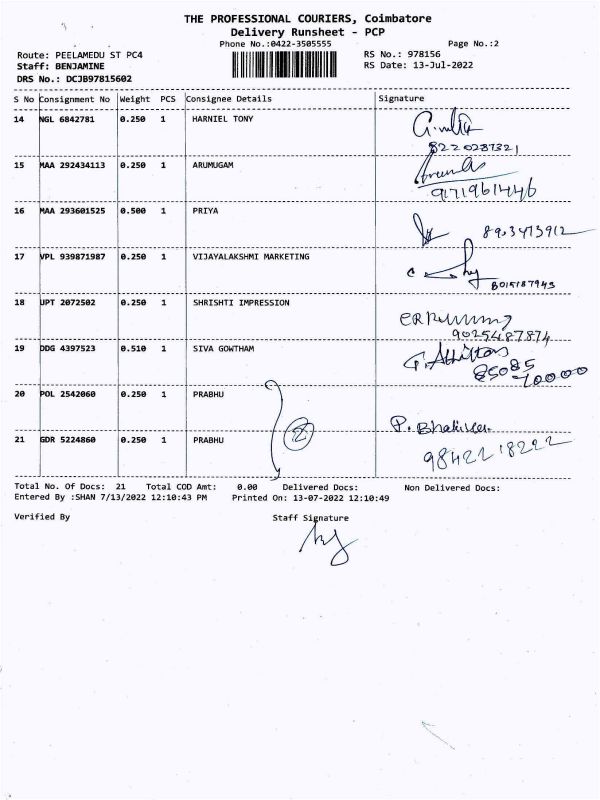 THE PROFESSIONAL COURIERS, Coimbatore
Delivery Runsheet - PCP
Phone No.:0422-3505555 Page No.:2
Route: PEELAMEDU ST PC4 RS No.: 978156
Staff: BENJAMINE RS Date: 13-Jul-2022
DRS No.: DCJB97815602
S No Consignment No Weight PCS Consignee Details Signature
14 NGL 6842781 0.250 1 HARNIEL TONY
8220287321
15 MAA 292434113 0.250 1 ARUMUGAM
9171961446
16 MAA 293601525 0.500 1 PRIYA
8903473912
17 VPL 939871987 0.250 1 VIJAYALAKSHMI MARKETING
8015187943
18 JPT 2072502 0.250 1 SHRISHTI IMPRESSION
9025487874
19 DDG 4397523 0.510 1 SIVA GOWTHAM
85085
70000
20 POL 2542060 0.250 1 PRABHU
2 P.
21 GDR 5224860 0.250 1 PRABHU
9842218222
Total No. Of Docs: 21 Total COD Amt: 0.00 Delivered Docs: Non Delivered Docs:
Entered By :SHAN 7/13/2022 12:10:43 PM Printed On: 13-07-2022 12:10:49
Verified By Staff Signature